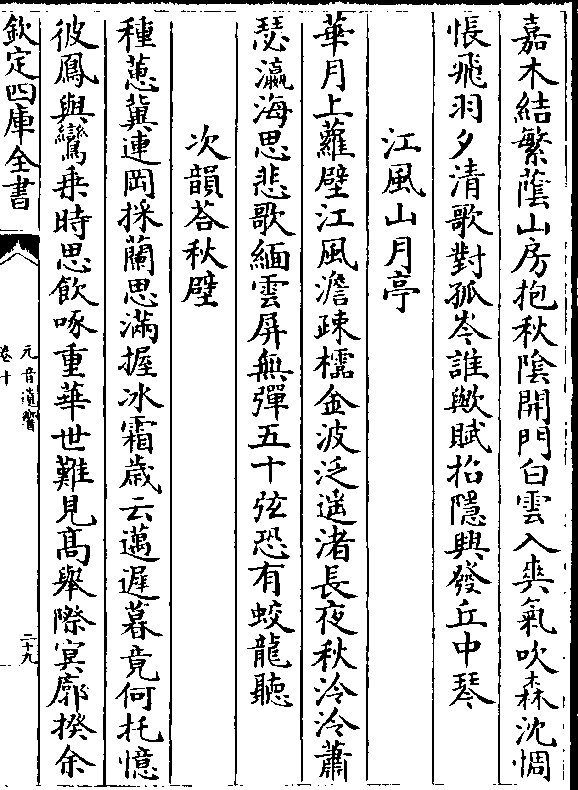 嘉木結繁蔭山房抱秋陰開門白雲入爽氣吹森沈惆
悵飛羽夕清歌對孤岑誰歟賦招隱興發丘中琴
江風山月亭
華月上蘿壁江風澹疎櫺金波泛遥渚長夜秋泠泠蕭
瑟瀛海思悲歌緬雲屏無彈五十弦恐有蛟龍聽
次韻荅秋壁
種蕙冀連岡採蘭思滿握冰霜歲云邁遲暮竟何托憶
彼鳳與鸞乘時思飲啄重華世難見髙舉際㝠廓揆余
欽定四庫全書
元音遺響
卷十
二十九